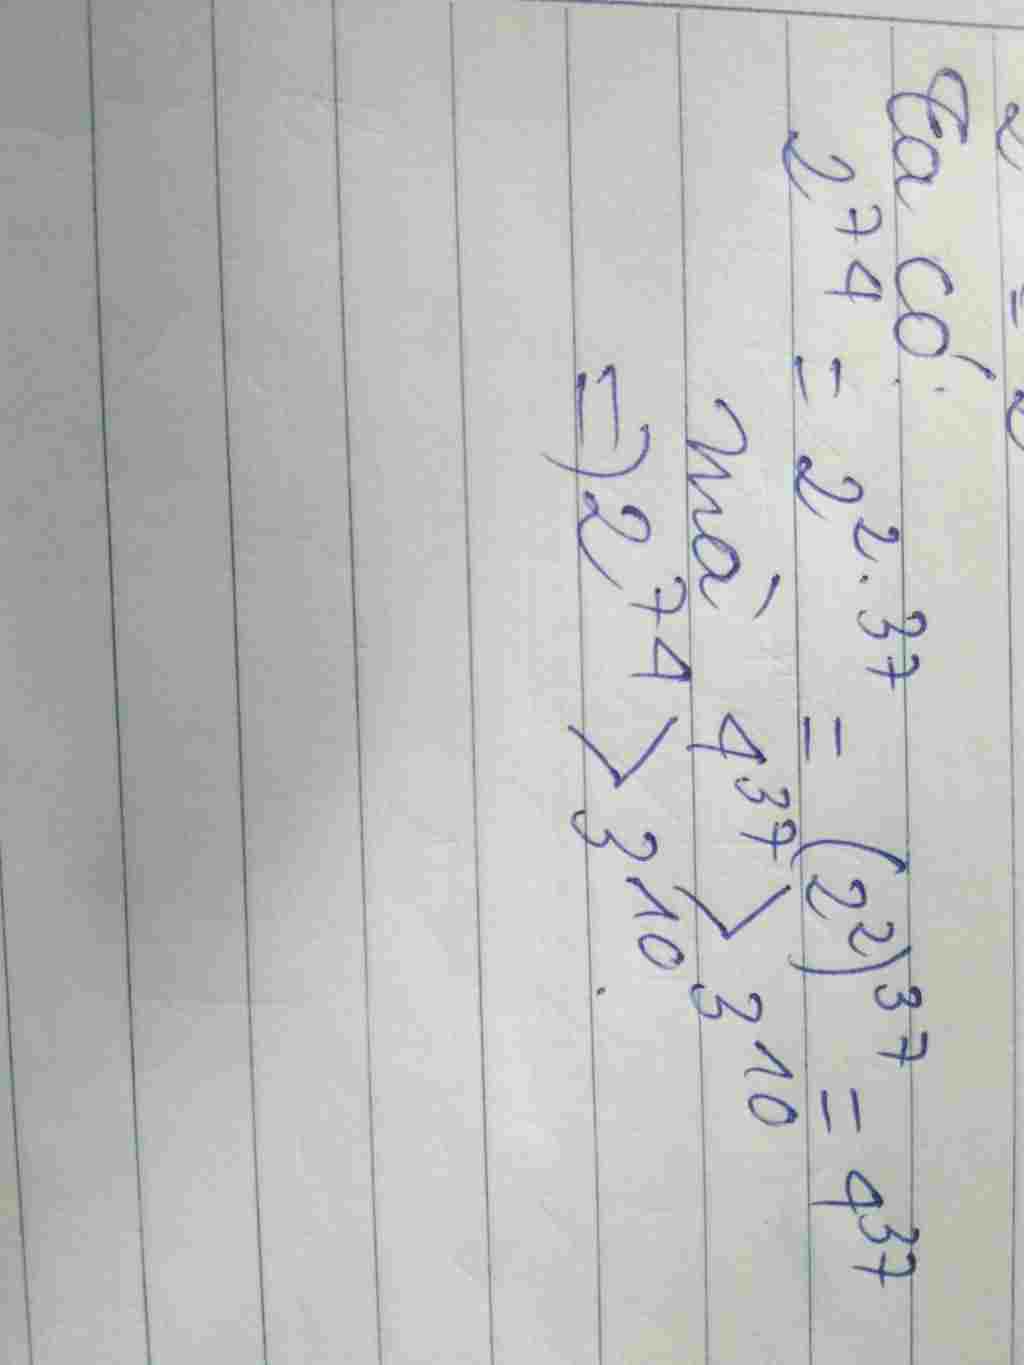 Ta có:
2^74 = 2^2.37 = (2^2)^37 = 4^37
mà 4^37 > 3^10
=> 2^74 > 3^10.